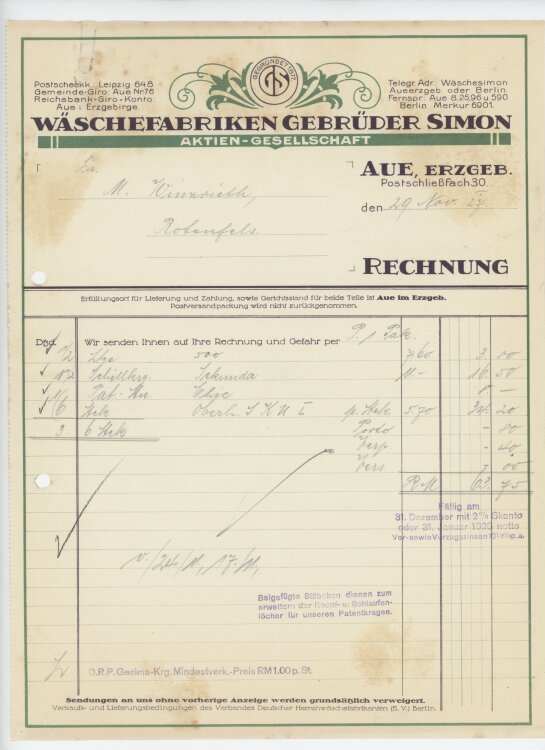 GEGRÜNDET 1877
Postscheckk.: Leipzig 648
Gemeinde-Giro: Aue Nr. 76
Reichsbank-Giro-Konto:
Aue i. Erzgebirge.
Telegr. Adr. Wäschesimon
Aueerzgeb. oder Berlin.
Fernspr.: Aue 8,25,96 u. 590
Berlin Merkur 6901.
WÄSCHEFABRIKEN GEBRÜDER SIMON
AKTIEN-GESELLSCHAFT
Fa.
M. Winnrieth,
Rotenfels.
AUE, ERZGEB.
Postschließfach 30.
den 29 Nov. 27.
RECHNUNG
Erfüllungsort für Lieferung und Zahlung, sowie Gerichtsstand für beide Teile ist Aue im Erzgeb.
Postversandpackung wird nicht zurückgenommen.
Dtzd. Wir senden Ihnen auf Ihre Rechnung und Gefahr per P. / Pak.
1/2 500 7.60 3. 80
1 1/2 Sekunda 11.- 16. 50
8 -
6 Stck Oberh. p. Stck. 5.70 34. 20
3 6 Stck Porto - 80
Verp. - 40
Vers.
RM 63. 75
Fällig am
31. Dezember mit 2% Skonto
oder 31. Januar 1928 netto
Vor- sowie Verzugszinsen 10% p. a.
v. /24/11, 17/11,
Beigefügte Stäbchen dienen zum
erweitern der Knopf- u. Schlaufen-
löcher für unseren Patentkragen.
D.R.P. Gesima-Krg. Mindestverk.-Preis RM 1.00 p. St.
Sendungen an uns ohne vorherige Anzeige werden grundsätzlich verweigert.
Verkaufs- und Lieferungsbedingungen des Verbandes Deutscher Herrenwäschefabrikanten (E. V.) Berlin.